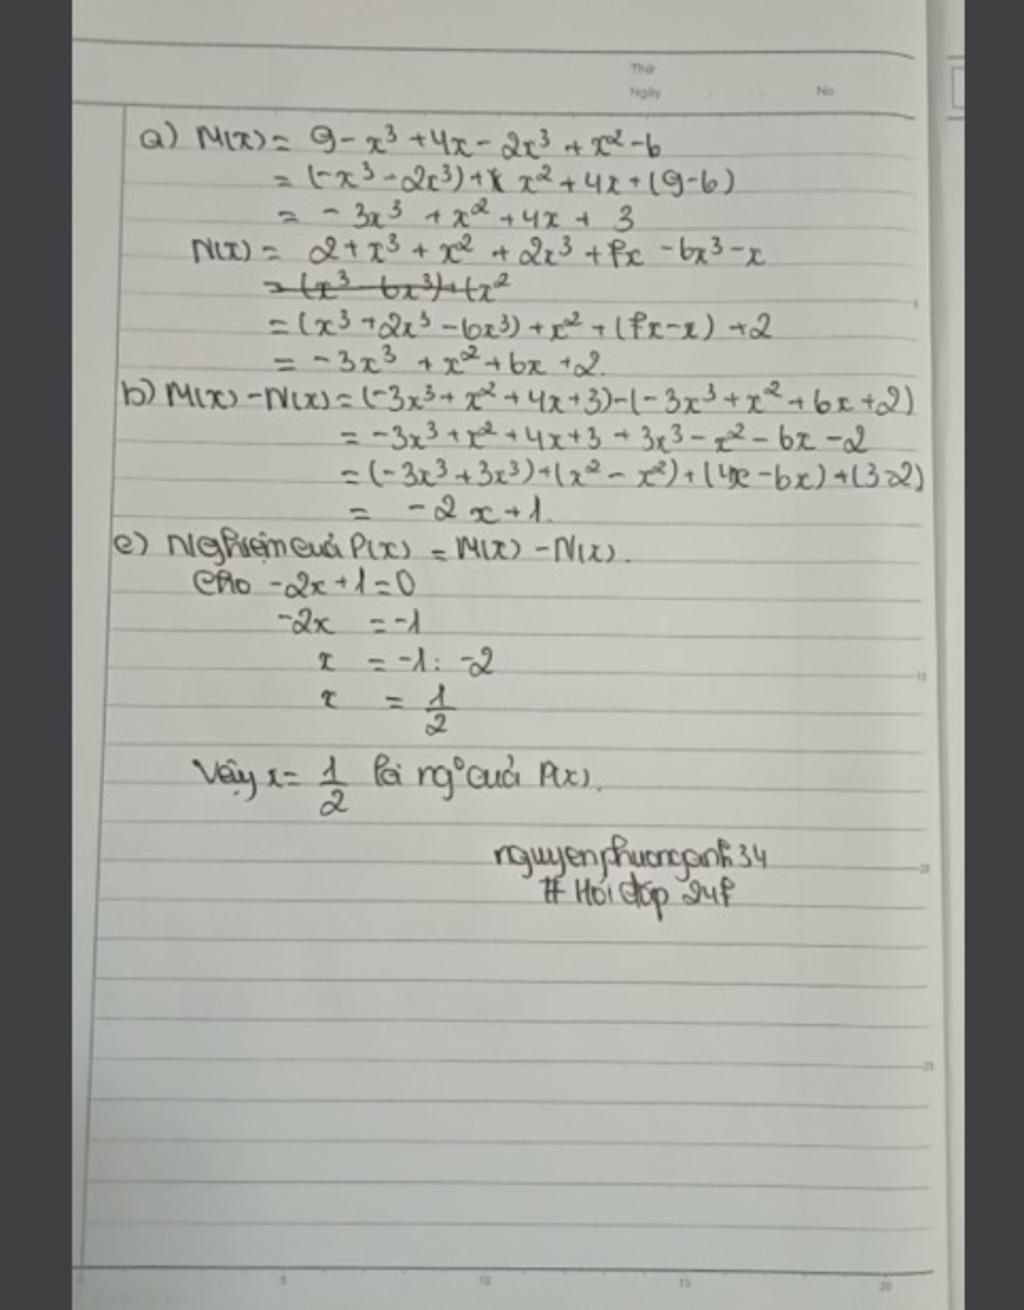 Thứ
Ngày No
a) M(x) = 9 - x³ + 4x - 2x³ + x² - 6
= (-x³ - 2x³) + x² + 4x + (9-6)
= - 3x³ + x² + 4x + 3
N(x) = 2 + x³ + x² + 2x³ + 7x - 6x³ - x
= (x³ - 6x³) + (x²
= (x³ + 2x³ - 6x³) + x² + (7x - x) + 2
= - 3x³ + x² + 6x + 2.
b) M(x) - N(x) = (-3x³ + x² + 4x + 3) - (-3x³ + x² + 6x + 2)
= -3x³ + x² + 4x + 3 + 3x³ - x² - 6x - 2
= (-3x³ + 3x³) + (x² - x²) + (4x - 6x) + (3-2)
= -2x + 1.
c) Nghiệm của P(x) = M(x) - N(x).
Cho -2x + 1 = 0
-2x = -1
x = -1 : -2
x = 1/2
Vậy x = 1/2 là ng° của P(x).
nguyenphuonganh34
# Hỏi đáp 247
5 10 15 20